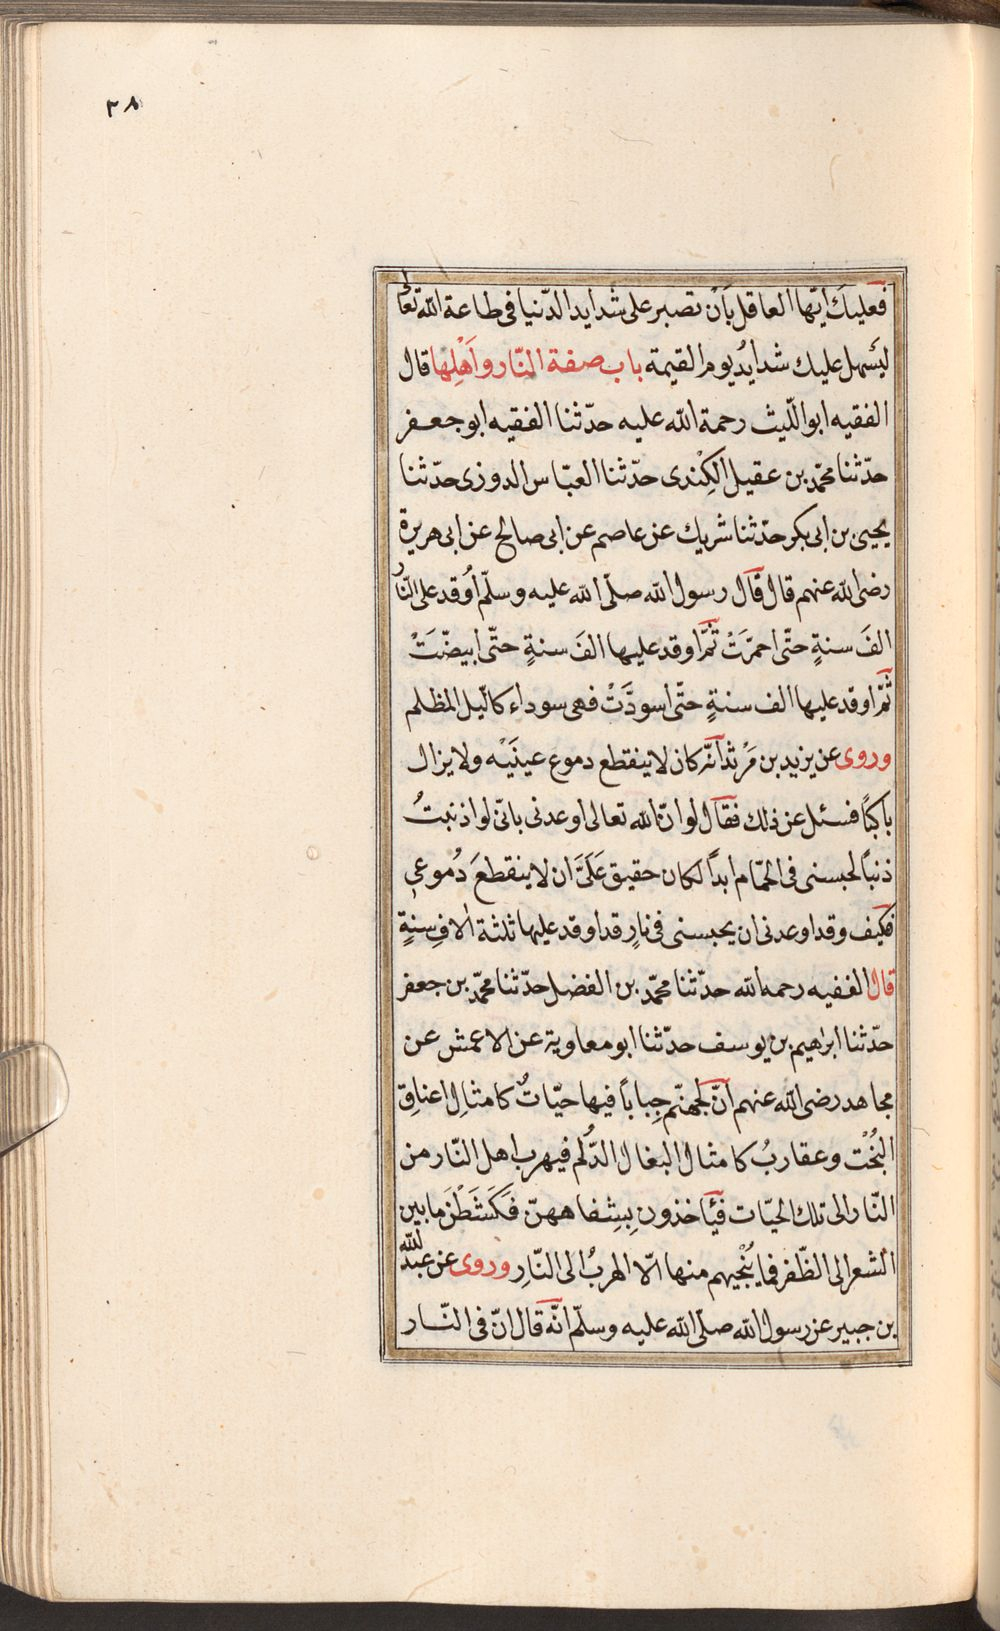 ٣٨
فعليك ايّها العاقل بَاَنْ تصبر على شدايد الدّنيا فى طاعة الله تعالى
ليَسهل عليك شدايدُ يوم القيمة باب صفة النّار واَهْلِها قال
الفقيه ابو اللّيث رحمة الله عليه حدّثنا الفقيه ابو جعفر
حدّثنا محمّد بن عقيل الكِنْدى حدّثنا العبّاس الدورى حدّثنا
يحيى بن ابى بكر حدّثنا شريك عن عاصم عن ابى صالح عن ابى هريرة
رضى الله عنهم قال قال رسول الله صلّى الله عليه وسلّم اُوقد على النّارُ
الفَ سنةٍ حتّى احمرّتْ ثمّ اوقد عليها الفَ سنةٍ حتّى ابيضّتْ
ثمّ اوقد عليها الف سنةٍ حتّى اسودَّتْ فهى سوداء كالّيل المظلم
وروى عن يزيد بن مَرْثد انّه كان لا ينقطع دموع عينَيْه ولا يزال
باكيًا فسئل عن ذلك فقال لو انّ الله تعالى اوعدنى بانّى لو اذنبتُ
ذنبًا لحبسنى فى الحمّام ابدًا لكان حقيق عَلَىَّ ان لا ينقطعَ دُموعى
فكيف وقد اوعدنى ان يحبسنى فى نارٍ قد اوقد عليها ثلثة الاف سنةٍ
قال الفقيه رحمه الله حدّثنا محمّد بن الفضل حدّثنا محمّد بن جعفر
حدّثنا ابرٰهيم بن يوسف حدّثنا ابو معاوية عن الاعمش عن
مجاهد رضى الله عنهم انّ لجهنّم جِبابًا فيها حيّاتٌ كامثالِ اعناق
البُخْت وعقاربُ كامثال البغال الدُّلم فيهرب اهل النّار من
النّار الى تلك الحيّات فيَأخذون بِشِفاههنّ فَكَشَطْنَ ما بين
الشعر الى الظّفر فما يُنْجيهم منها الّا الهربُ الى النّارِ وروى عن عبد الله
بن جبير عن رسول الله صلّى الله عليه وسلّم انّه قال انّ فى النّار